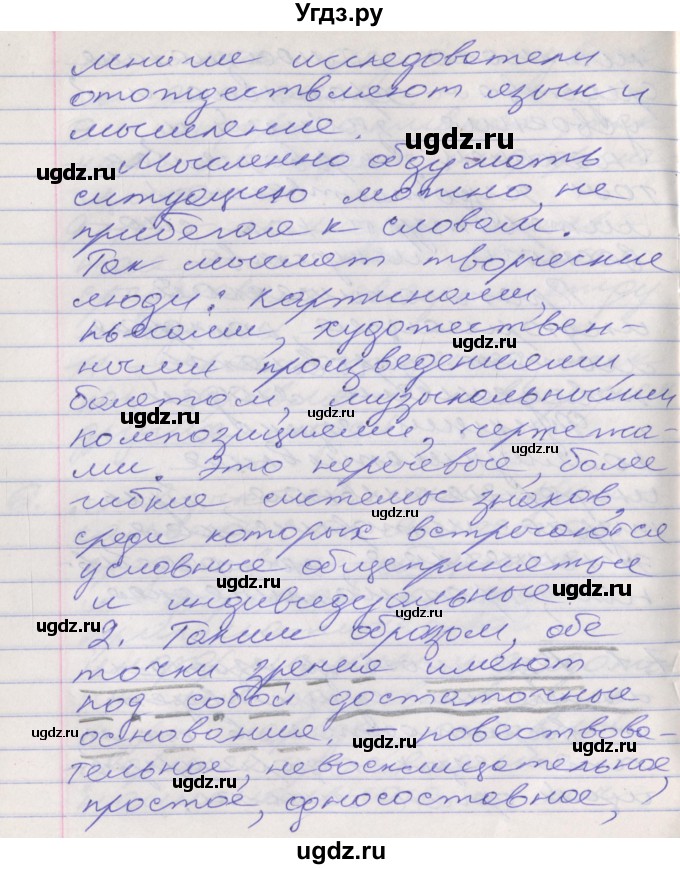 Угдз.ру
многие исследователи
отождествляют язык и
мышление.
ugdz.ru
Мысленно обдумать
ugdz.ru
ситуацию можно, не
прибегая к словам.
Так мыслят творческие
люди: картинами,
пьесами, художествен-
ugdz.ru
ными произведениями,
балетом, музыкальными
ugdz.ru
ugdz.ru
композициями, чертежа-
ми. Это неречевые, более
ugdz.ru
гибкие системы знаков,
среди которых встречаются
условные общепринятые
ugdz.ru
и индивидуальные.
ugdz.ru
2. Таким образом, обе
точки зрения имеют
под собой достаточные
ugdz.ru
основания. – повествова-
ugdz.ru
тельное, невосклицательное,
ugdz.ru
простое, односоставное,
ugdz.ru